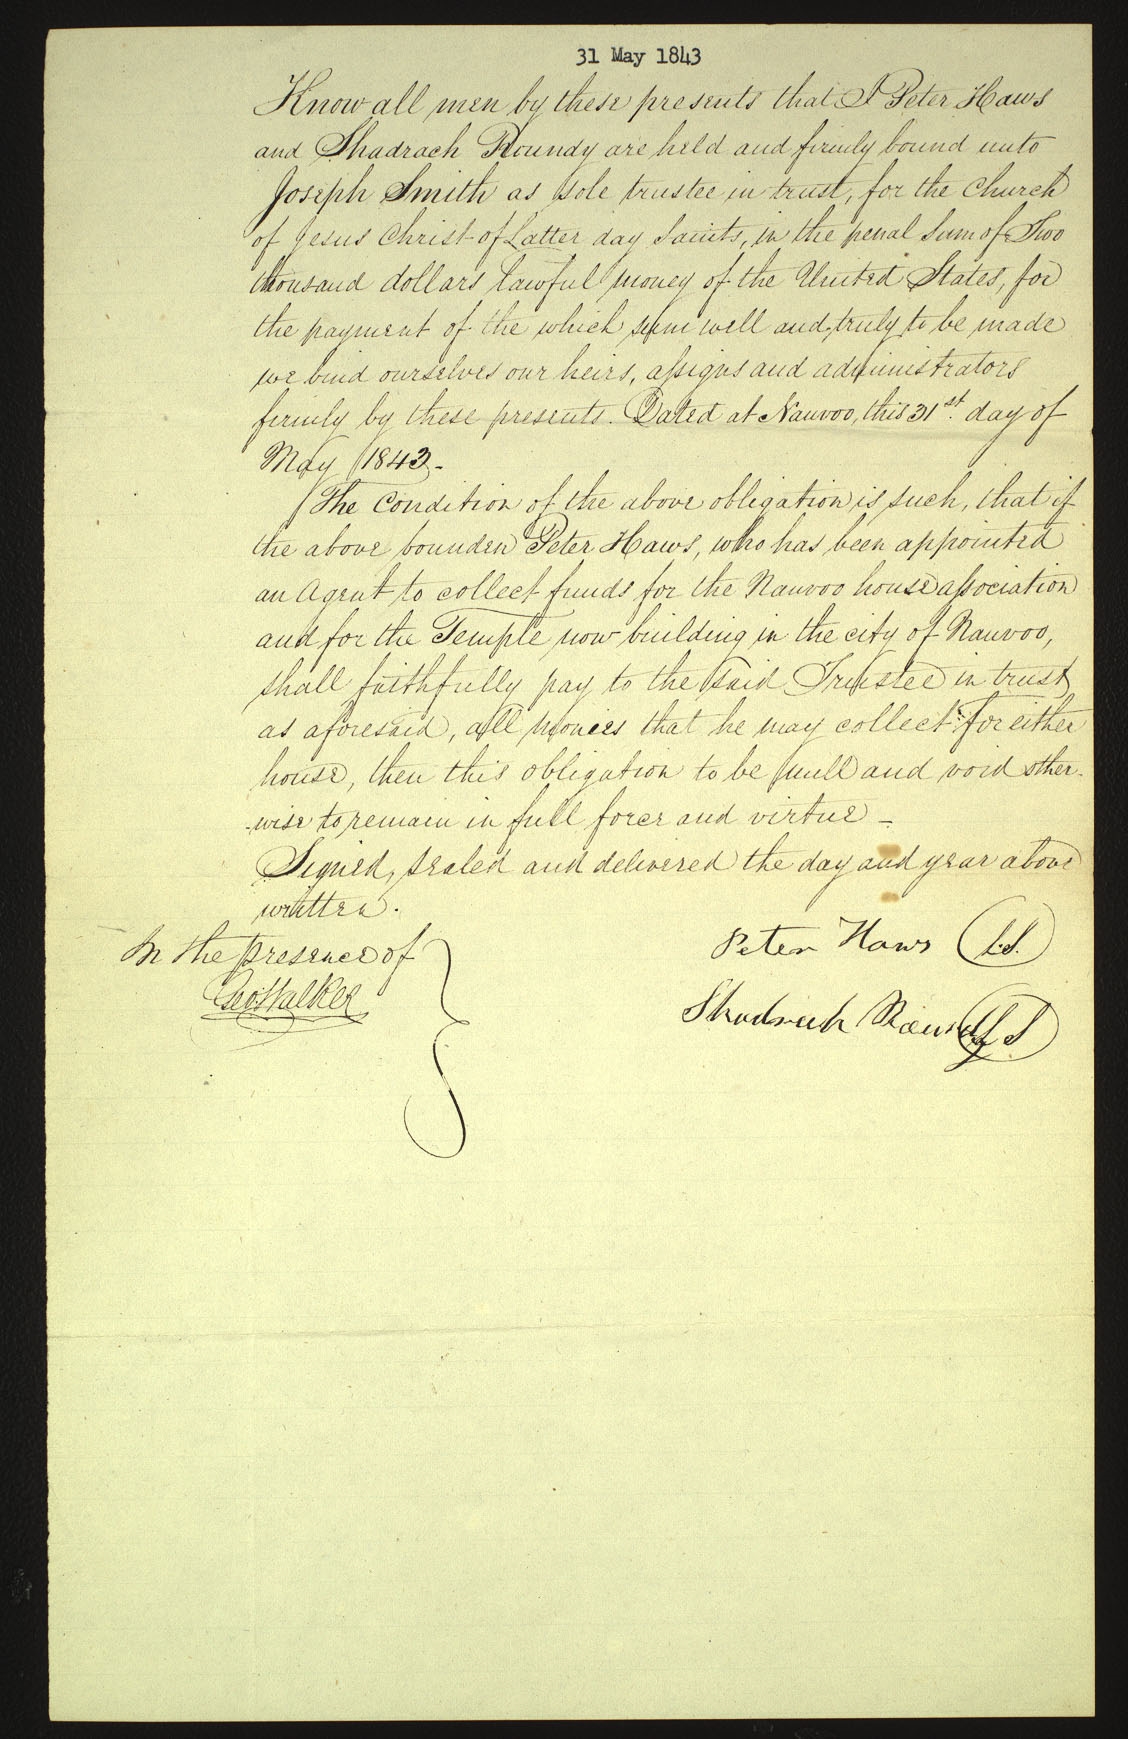 31 May 1843
Know all men by these presents that I Peter Haws
and Shadrach Roundy are held and firmly bound unto
Joseph Smith as sole trustee in trust, for the Church
of Jesus Christ of Latter day Saints, in the penal sum of Two
thousand dollars lawful money of the United States, for
the payment of the which sum well and truly to be made
we bind ourselves our heirs, assigns and administrators
firmly by these presents. Dated at Nauvoo, this 31st. day of
May 1843.-
The condition of the above obligation is such, that if
the above bounden Peter Haws, who has been appointed
an Agent to collect funds for the Nauvoo house association
and for the Temple now building in the city of Nauvoo,
shall faithfully pay to the said Trustee in trust
as aforesaid, all monies that he may collect for either
house, then this obligation to be null and void other-
-wise to remain in full force and virtue -
Signed, sealed and delivered the day and year above
written.
In the presence of
Geo. Walker
Peter Haws L.S.
Shadrach Roundy L S